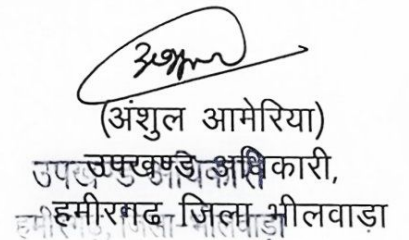 (अंशुल आमेरिया)
उपखण्ड अधिकारी,
हमीरगढ जिला भीलवाड़ा